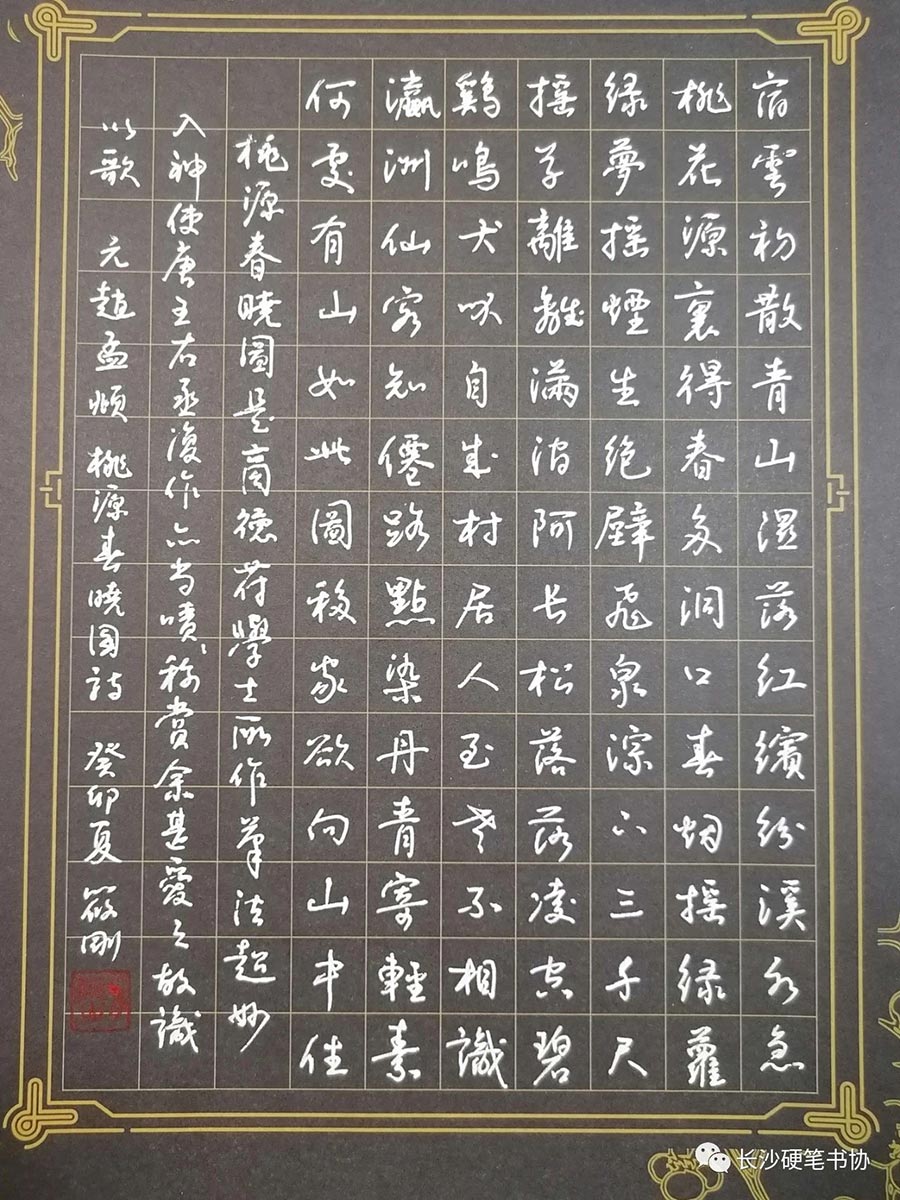 宿雲初散青山濕落紅繽紛溪水急
桃花源裏得春多洞口春烟摇緑蘿
緑夢摇煙生絶壁飛泉淙下三千尺
摇草離離滿澗阿長松落落凌空碧
鷄鳴犬吠自成村居人至老不相識
瀛洲仙客知僊路點染丹青寄輕素
何處有山如此圖移家欲向山中住
桃源春曉圖是商德符學士所作筆法超妙
入神使唐王右丞復作亦當嘖嘖稱賞余甚愛之故識
以歌 元趙孟頫桃源春曉圖詩 癸卯夏 筱剛
长沙硬笔书协